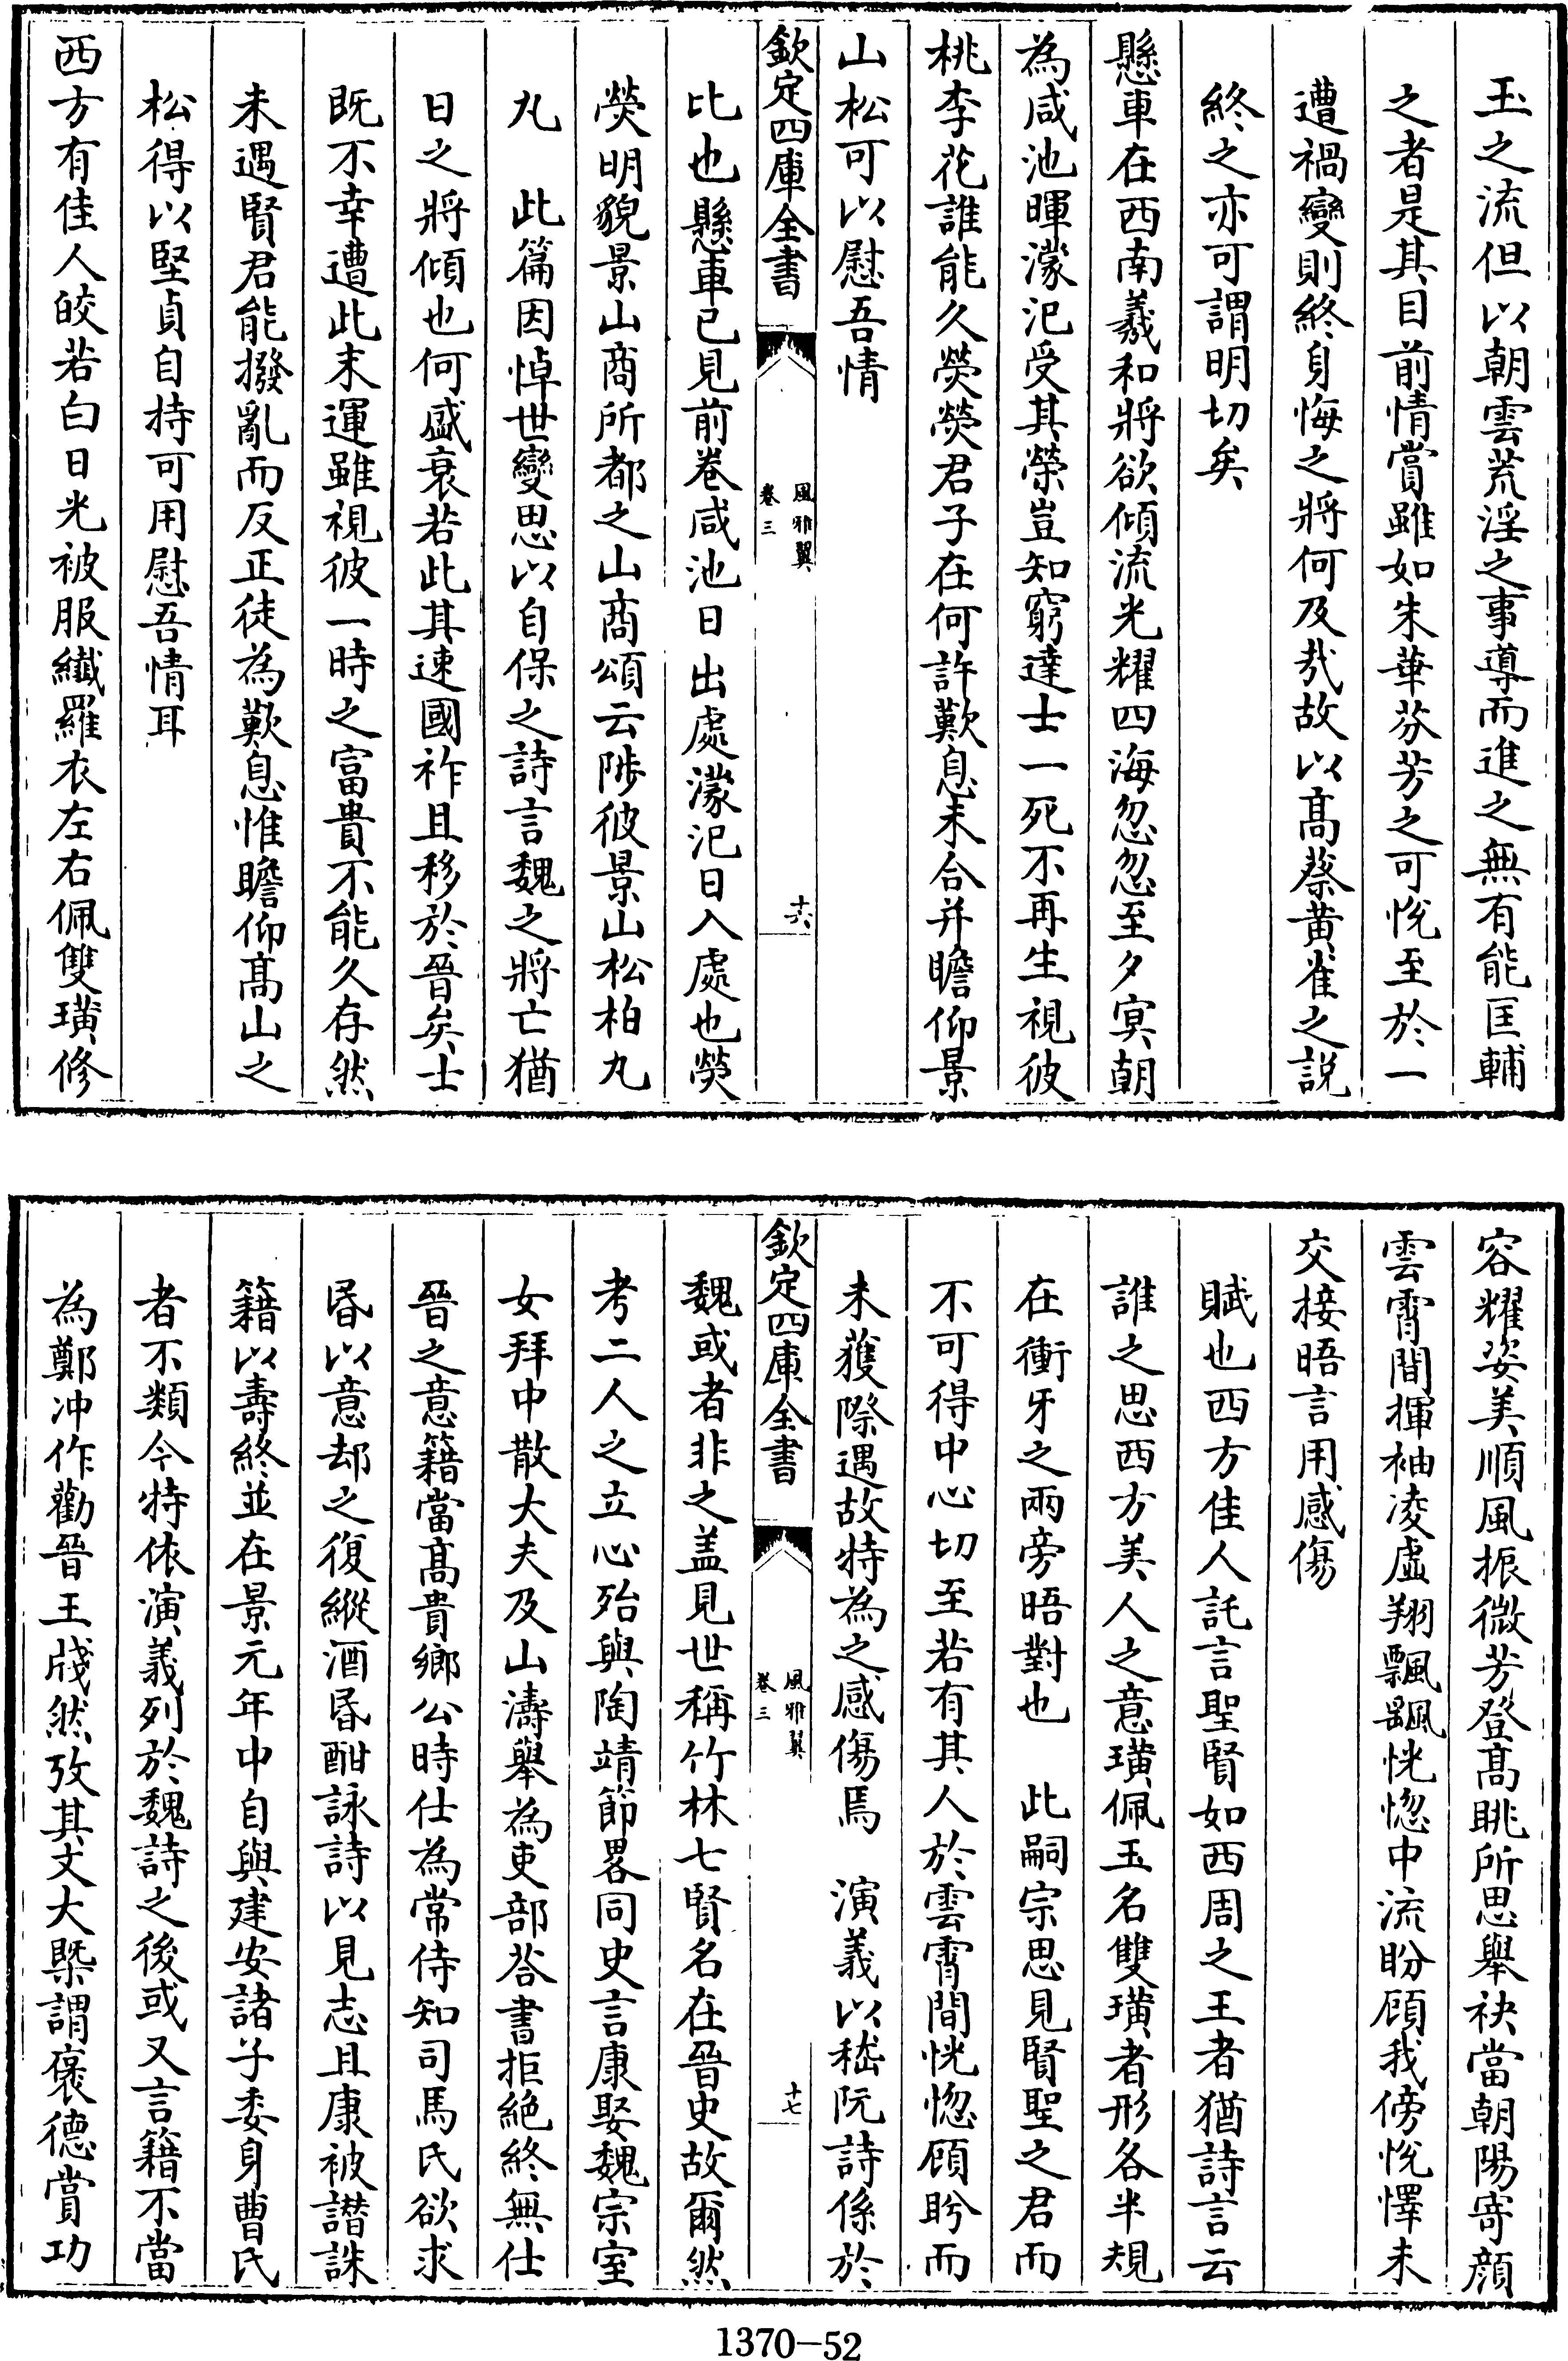 玉之流但以朝雲荒淫之事導而進之無有能匡輔
之者是其目前情賞雖如朱華芬芳之可悅至於一
遭禍變則終身悔之將何及㢤故以髙蔡黃雀之説
終之亦可謂明切矣
懸車在西南羲和將欲傾流光耀四海忽忽至夕㝠朝
為咸池暉濛汜受其榮豈知窮達士一死不再生視彼
桃李花誰能久熒熒君子在何許歎息未合并瞻仰景
山松可以慰吾情
欽定四庫全書
風雅翼
卷三
十六
比也懸車已見前卷咸池日出處濛汜日入處也熒
熒明貌景山商所都之山商頌云陟彼景山松柏丸
丸　此篇因悼世變思以自保之詩言魏之將亡猶
日之將傾也何盛衰若此其速國祚且移於晉矣士
既不幸遭此末運雖視彼一時之富貴不能久存然
未遇賢君能撥亂而反正徒為歎息惟瞻仰髙山之
松得以堅貞自持可用慰吾情耳
西方有佳人皎若白日光被服纖羅衣左右佩雙璜修
容耀姿美順風振微芳登髙眺所思舉袂當朝陽寄顔
雲霄間揮袖凌虛翔飄飖恍惚中流盼顧我傍悅懌未
交接晤言用感傷
賦也西方佳人託言聖賢如西周之王者猶詩言云
誰之思西方美人之意璜佩玉名雙璜者形各半規
在衝牙之兩旁晤對也　此嗣宗思見賢聖之君而
不可得中心切至若有其人於雲霄間恍惚顧盻而
未獲際遇故特為之感傷焉　演義以嵇阮詩係於
欽定四庫全書
風雅翼
卷三
十七
魏或者非之盖見世稱竹林七賢名在晉史故爾然
考二人之立心殆與陶靖節畧同史言康娶魏宗室
女拜中散大夫及山濤舉為吏部荅書拒絶終無仕
晉之意籍當髙貴鄉公時仕為常侍知司馬氏欲求
昏以意却之復縱酒昏酣詠詩以見志且康被譖誅
籍以壽終並在景元年中自與建安諸子委身曹氏
者不類今特依演義列於魏詩之後或又言籍不當
為鄭冲作勸晉王牋然攷其文大槩謂褒德賞功
1370-52